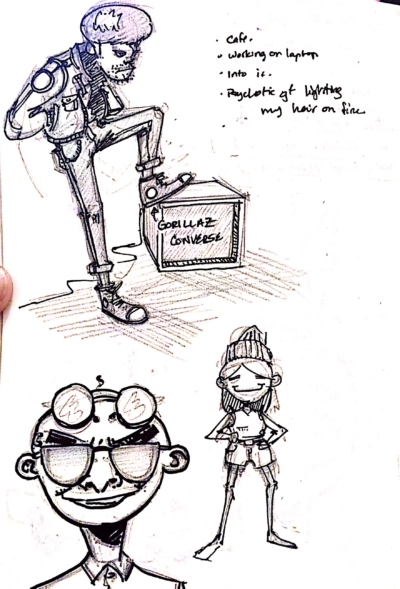 · Cafe.
· Working on laptop
· Into it.
· Psychotic gf lighting
my hair on fire
GORILLAZ
CONVERSE